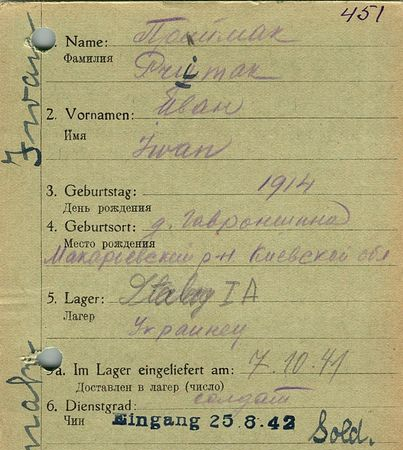 451
1. Name:
Фамилия
2. Vornamen: Иван
Имя Iwan
Iwan
3. Geburtstag: 1914
День рождения
4. Geburtsort: д. Гавронщина
Место рождения
Макарьевский р-н Киевской обл
5. Lager: Stalag I A
Лагер
Украинец
5a. Im Lager eingeliefert am: 7.10.41
Доставлен в лагер (число)
6. Dienstgrad: солдат
Чин
Eingang 25.8.42 Sold.